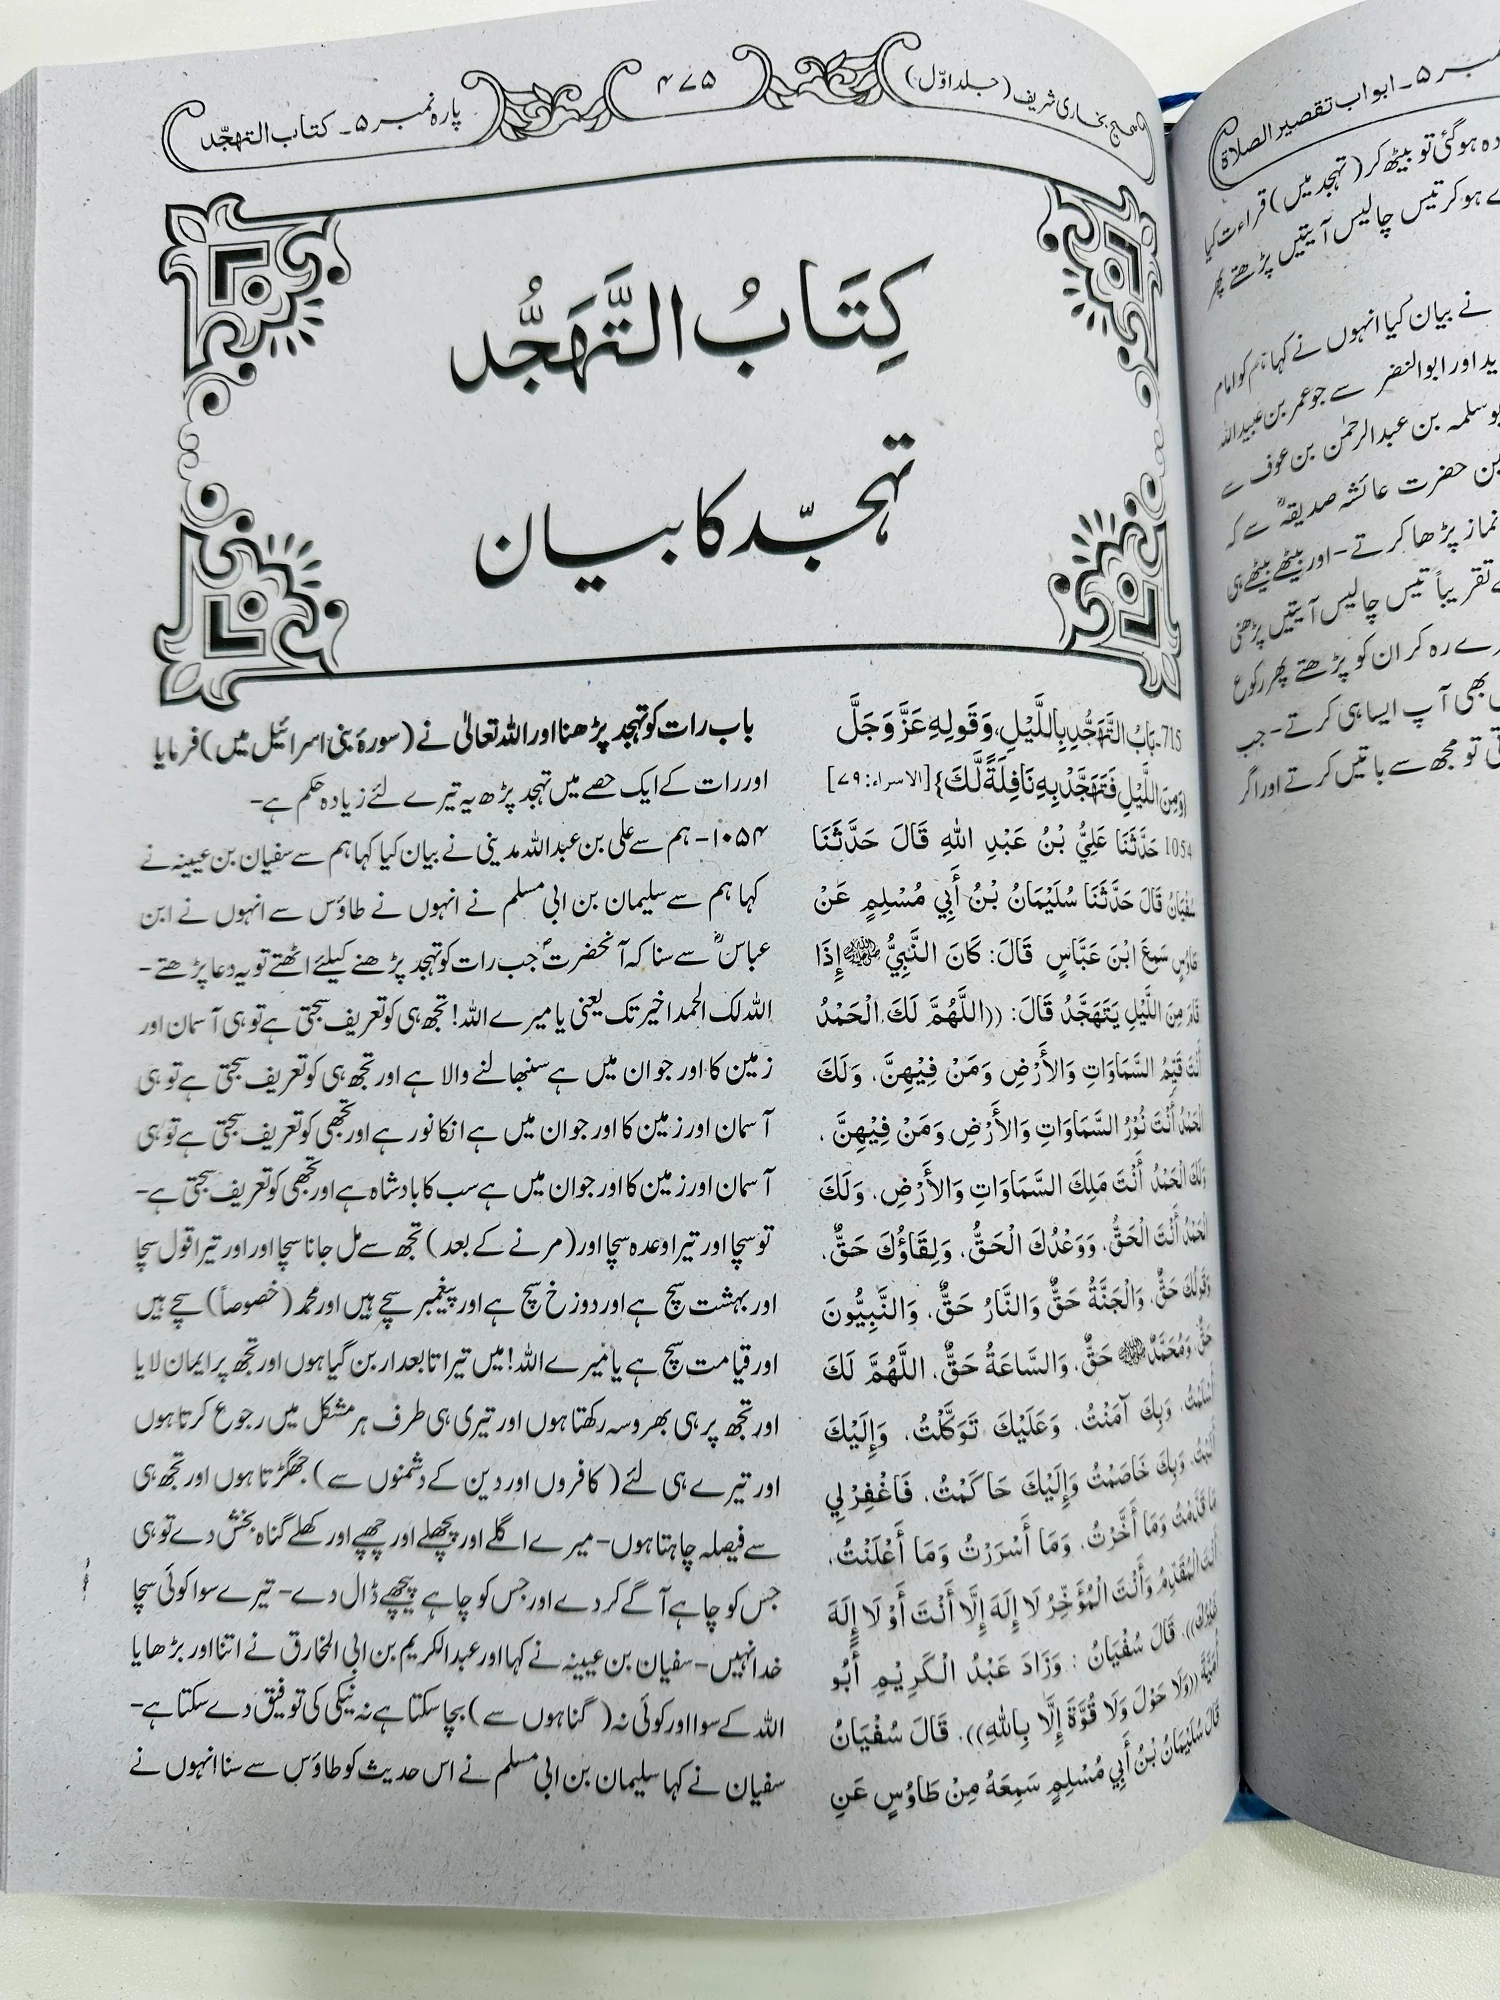 صحیح بخاری شریف (جلد اوّل)
۴۷۵
پارہ نمبر ۵۔ کتاب التہجّد
کِتَابُ التَّهَجُّد
تہجّد کا بیان
715۔بَابُ التَّهَجُّدِ بِاللَّيْلِ، وَقَوْلِهِ عَزَّ وَجَلَّ
{وَمِنَ اللَّيْلِ فَتَهَجَّدْ بِهِ نَافِلَةً لَّكَ} [الاسراء: ٧٩]
1054 حَدَّثَنَا عَلِيُّ بْنُ عَبْدِ اللهِ قَالَ حَدَّثَنَا
سُفْيَانُ قَالَ حَدَّثَنَا سُلَيْمَانُ بْنُ أَبِي مُسْلِمٍ عَنْ
طَاوُسٍ سَمِعَ ابْنَ عَبَّاسٍ قَالَ: كَانَ النَّبِيُّ ﷺ إِذَا
قَامَ مِنَ اللَّيْلِ يَتَهَجَّدُ قَالَ: ((اللَّهُمَّ لَكَ الْحَمْدُ
أَنْتَ قَيِّمُ السَّمَاوَاتِ وَالأَرْضِ وَمَنْ فِيْهِنَّ، وَلَكَ
الْحَمْدُ أَنْتَ نُوْرُ السَّمَاوَاتِ وَالأَرْضِ وَمَنْ فِيْهِنَّ،
وَلَكَ الْحَمْدُ أَنْتَ مَلِكَ السَّمَاوَاتِ وَالأَرْضِ، وَلَكَ
الْحَمْدُ أَنْتَ الْحَقُّ، وَوَعْدُكَ الْحَقُّ، وَلِقَاؤُكَ حَقٌّ،
وَقَوْلُكَ حَقٌّ، وَالْجَنَّةُ حَقٌّ وَالنَّارُ حَقٌّ، وَالنَّبِيُّونَ
حَقٌّ، وَمُحَمَّدٌ ﷺ حَقٌّ، وَالسَّاعَةُ حَقٌّ، اللَّهُمَّ لَكَ
أَسْلَمْتُ، وَبِكَ آمَنْتُ، وَعَلَيْكَ تَوَكَّلْتُ، وَإِلَيْكَ
أَنَبْتُ، وَبِكَ خَاصَمْتُ وَإِلَيْكَ حَاكَمْتُ، فَاغْفِرْلِي
مَا قَدَّمْتُ وَمَا أَخَّرْتُ، وَمَا أَسْرَرْتُ وَمَا أَعْلَنْتُ،
أَنْتَ الْمُقَدِّمُ وَأَنْتَ الْمُؤَخِّرُ لَا إِلَهَ إِلَّا أَنْتَ أَوْ لَا إِلَهَ
غَيْرُكَ)). قَالَ سُفْيَانُ: وَزَادَ عَبْدُ الْكَرِيْمِ أَبُو
أُمَيَّةَ ((وَلَا حَوْلَ وَلَا قُوَّةَ إِلَّا بِاللهِ)). قَالَ سُفْيَانُ
قَالَ سُلَيْمَانُ بْنُ أَبِي مُسْلِمٍ سَمِعَهُ مِنْ طَاوُسٍ عَنِ
باب رات کو تہجد پڑھنا اور اللہ تعالیٰ نے (سورۂ بنی اسرائیل میں) فرمایا
اور رات کے ایک حصے میں تہجد پڑھ یہ تیرے لئے زیادہ حکم ہے۔
۱۰۵۴۔ ہم سے علی بن عبداللہ مدینی نے بیان کیا کہا ہم سے سفیان بن عیینہ نے
کہا ہم سے سلیمان بن ابی مسلم نے انہوں نے طاؤس سے انہوں نے ابن
عباسؓ سے سنا کہ آنحضرتؐ جب رات کو تہجد پڑھنے کیلئے اٹھتے تو یہ دعا پڑھتے۔
اللہ لک الحمد اخیر تک یعنی یا میرے اللہ! تجھ ہی کو تعریف سجتی ہے تو ہی آسمان اور
زمین کا اور جو ان میں ہے سنبھالنے والا ہے اور تجھ ہی کو تعریف سجتی ہے تو ہی
آسمان اور زمین کا اور جو ان میں ہے انکا نور ہے اور تجھی کو تعریف سجتی ہے تو ہی
آسمان اور زمین کا اور جو ان میں ہے سب کا بادشاہ ہے اور تجھی کو تعریف سجتی ہے۔
تو سچا اور تیرا وعدہ سچا اور (مرنے کے بعد) تجھ سے مل جانا سچا اور اور تیرا قول سچا
اور بہشت سچ ہے اور دوزخ سچ ہے اور پیغمبر سچے ہیں اور محمد (خصوصاً) سچے ہیں
اور قیامت سچ ہے یا میرے اللہ! میں تیرا تابعدار بن گیا ہوں اور تجھ پر ایمان لایا
اور تجھ پر ہی بھروسہ رکھتا ہوں اور تیری ہی طرف ہر مشکل میں رجوع کرتا ہوں
اور تیرے ہی لئے (کافروں اور دین کے دشمنوں سے) جھگڑتا ہوں اور تجھ ہی
سے فیصلہ چاہتا ہوں۔ میرے اگلے اور پچھلے اور چھپے اور کھلے گناہ بخش دے تو ہی
جس کو چاہے آگے کر دے اور جس کو چاہے پیچھے ڈال دے۔ تیرے سوا کوئی سچا
خدا نہیں۔ سفیان بن عیینہ نے کہا اور عبدالکریم بن ابی المخارق نے اتنا اور بڑھایا
اللہ کے سوا اور کوئی نہ (گناہوں سے) بچا سکتا ہے نہ نیکی کی توفیق دے سکتا ہے۔
سفیان نے کہا سلیمان بن ابی مسلم نے اس حدیث کو طاؤس سے سنا انہوں نے
۵۔ ابواب تقصیر الصلاۃ
ہو گئی تو بیٹھ کر (تہجد میں) قراءت کیا
ہو کر تیس چالیس آیتیں پڑھتے پھر
نے بیان کیا انہوں نے کہا ہم کو امام
اور ابوالنضر سے جو عمر بن عبیداللہ
سلمہ بن عبدالرحمٰن بن عوف سے
حضرت عائشہ صدیقہؓ سے کہ
نماز پڑھا کرتے۔ اور بیٹھے بیٹھے ہی
تقریباً تیس چالیس آیتیں پڑھنی
رہ کر ان کو پڑھتے پھر رکوع
بھی آپ ایسا ہی کرتے۔ جب
تو مجھ سے باتیں کرتے اور اگر